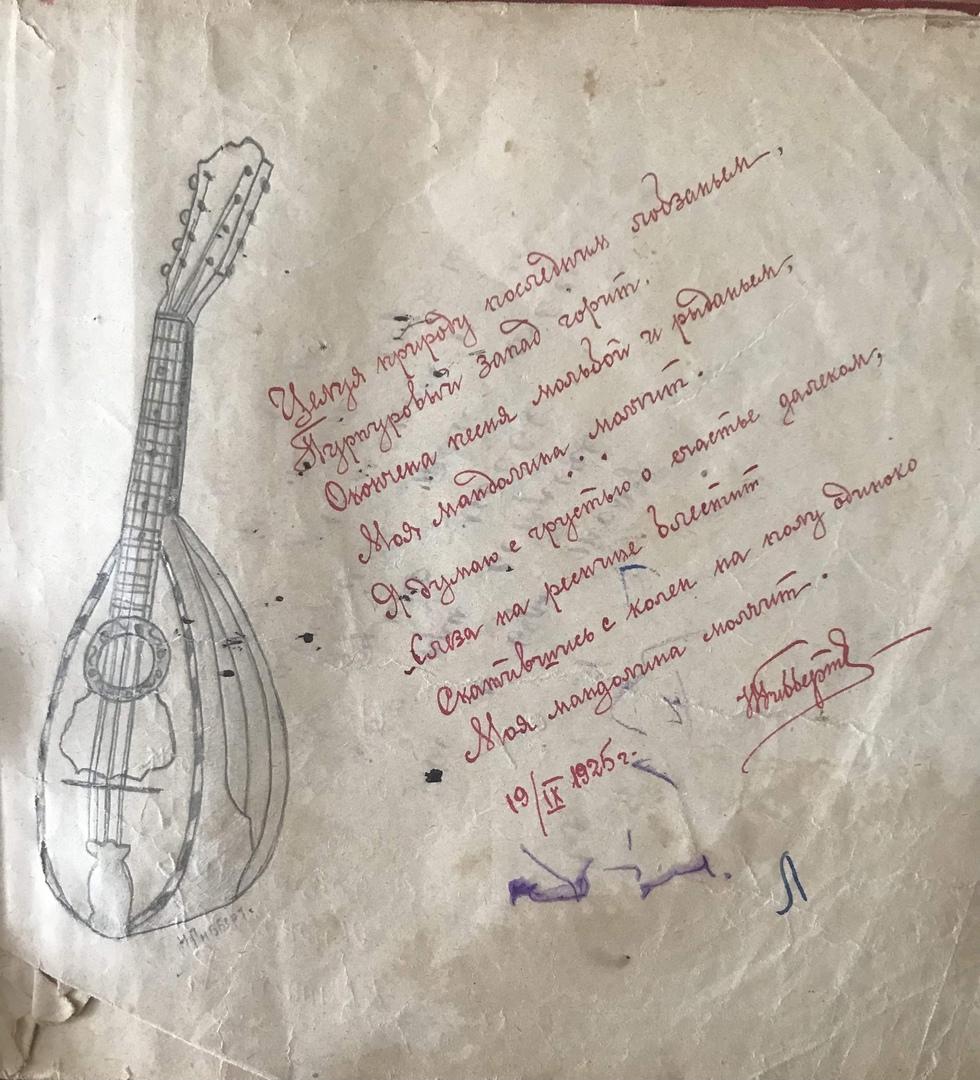 Целуя природу последним лобзаньем,
Пурпуровый запад горит.
Окончена песня мольбой и рыданьем,
Моя мандолина молчит.
Я думаю с грустью о счастье далеком,
Слеза на реснице блестит
Скатившись с колен на полу одиноко
Моя мандолина молчит.
НГибберт
19/IX 1925 г.
Л
Н.Гибберт.